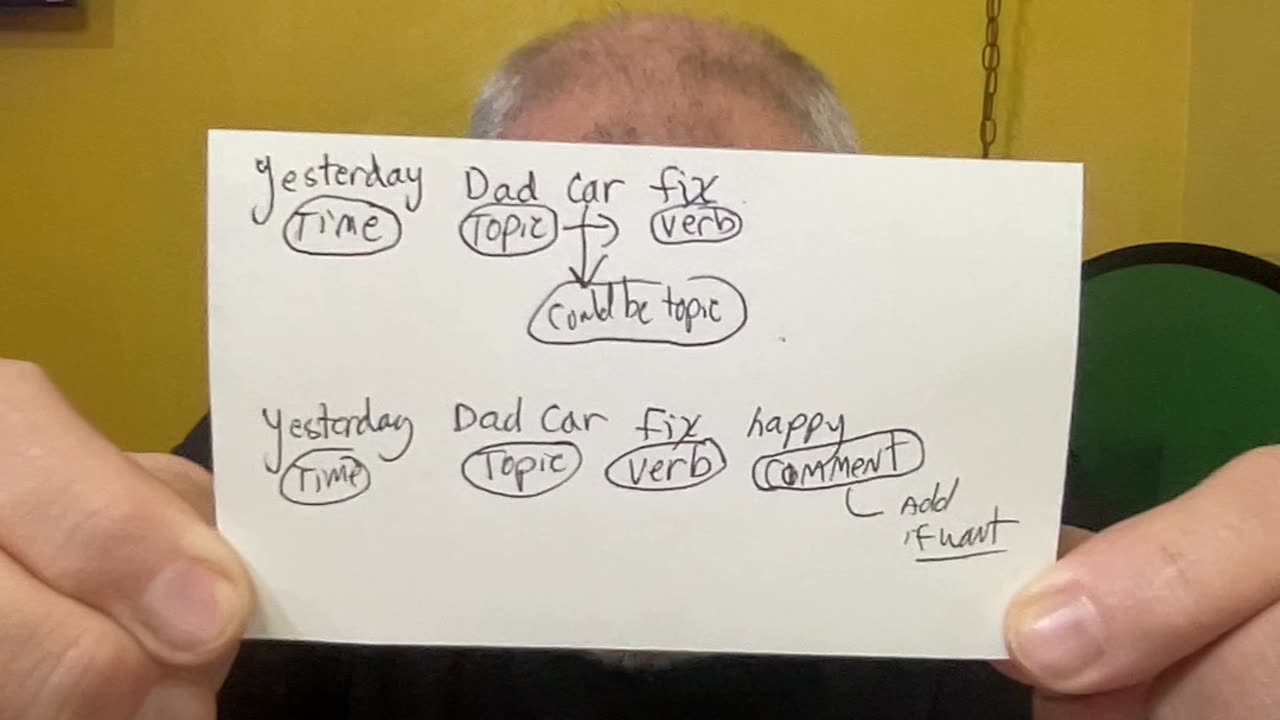 Yesterday Dad Car fix
Time Topic verb
Could be topic
Yesterday Dad Car fix happy
Time Topic verb COMMENT
Add
if want